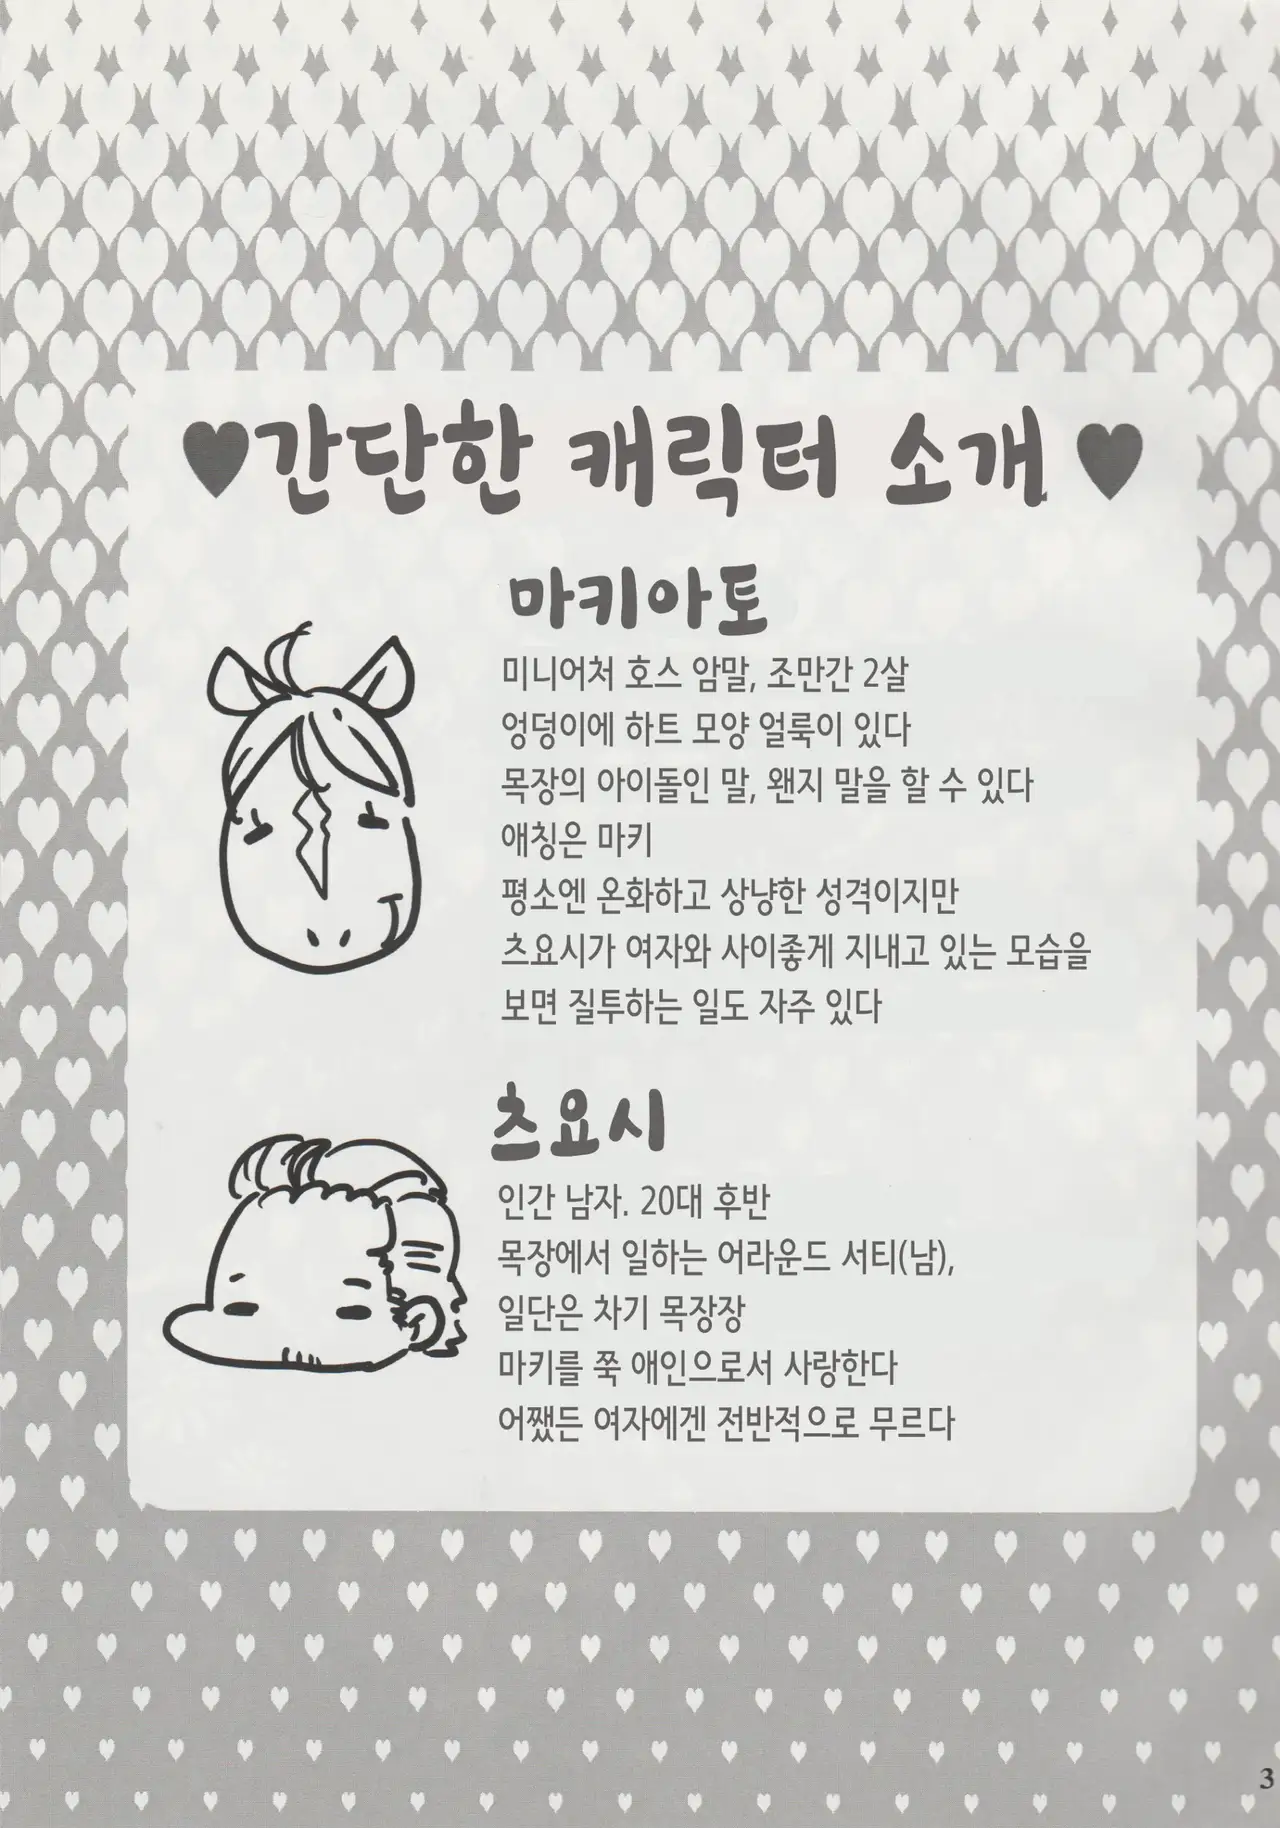 ♥간단한 캐릭터 소개♥
마키아토
미니어처 호스 암말, 조만간 2살
엉덩이에 하트 모양 얼룩이 있다
목장의 아이돌인 말, 왠지 말을 할 수 있다
애칭은 마키
평소엔 온화하고 상냥한 성격이지만
츠요시가 여자와 사이좋게 지내고 있는 모습을
보면 질투하는 일도 자주 있다
츠요시
인간 남자. 20대 후반
목장에서 일하는 어라운드 서티(남),
일단은 차기 목장장
마키를 쭉 애인으로서 사랑한다
어쨌든 여자에겐 전반적으로 무르다
3